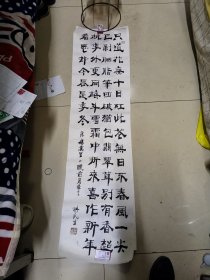 只道花無十日紅此花無日不春風一尖
已剥胭脂筆四破猶包翡翠茸别有香超
桃李外更同梅斗雪霜中折来喜作新年
看忘却今晨是季冬
楊萬里